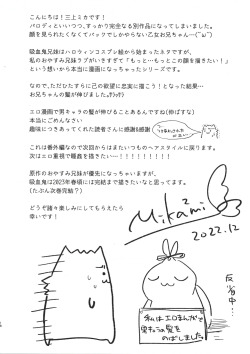 こんにちは！三上ミカです！
パロディといいつつ、すっかり完全なる別作品になってしまいました。
顔を見られたくなくてバックでしかやらない乙女お兄ちゃん…(´ω`)
吸血鬼兄妹はハロウィンコスプレ絵から始まったネタですが、
私のおやすみ兄妹ラブがいきすぎて「もっと…もっとこの顔を描きたい！」
という想いから本当に漫画になっちゃったシリーズです。
なので、ただひたすらに己の欲望に忠実に描こう！となった結果…
お兄ちゃんの髪が伸びました。
エロ漫画で男キャラの髪が伸びることあるんですね（伸ばすな）
本当にごめんなさい
趣味につきあってくれた読者さんに感謝&感謝
これは番外編なので次回からはまたいつものヘアスタイルに戻ります。
次はエロ重視で瞳鑫を描きたい～！！！！！！！！
原作のおやすみ兄妹が優先になっちゃいますが、
吸血鬼は2023年春頃には完結まで描きたいなって思ってます。
（たぶん次巻完結？）
どうぞ諸々楽しみにしてもらえたら
幸いです！
Mikami
2022.12
反省中…
私はエロまんがで
男キャラの髪を
のばしました